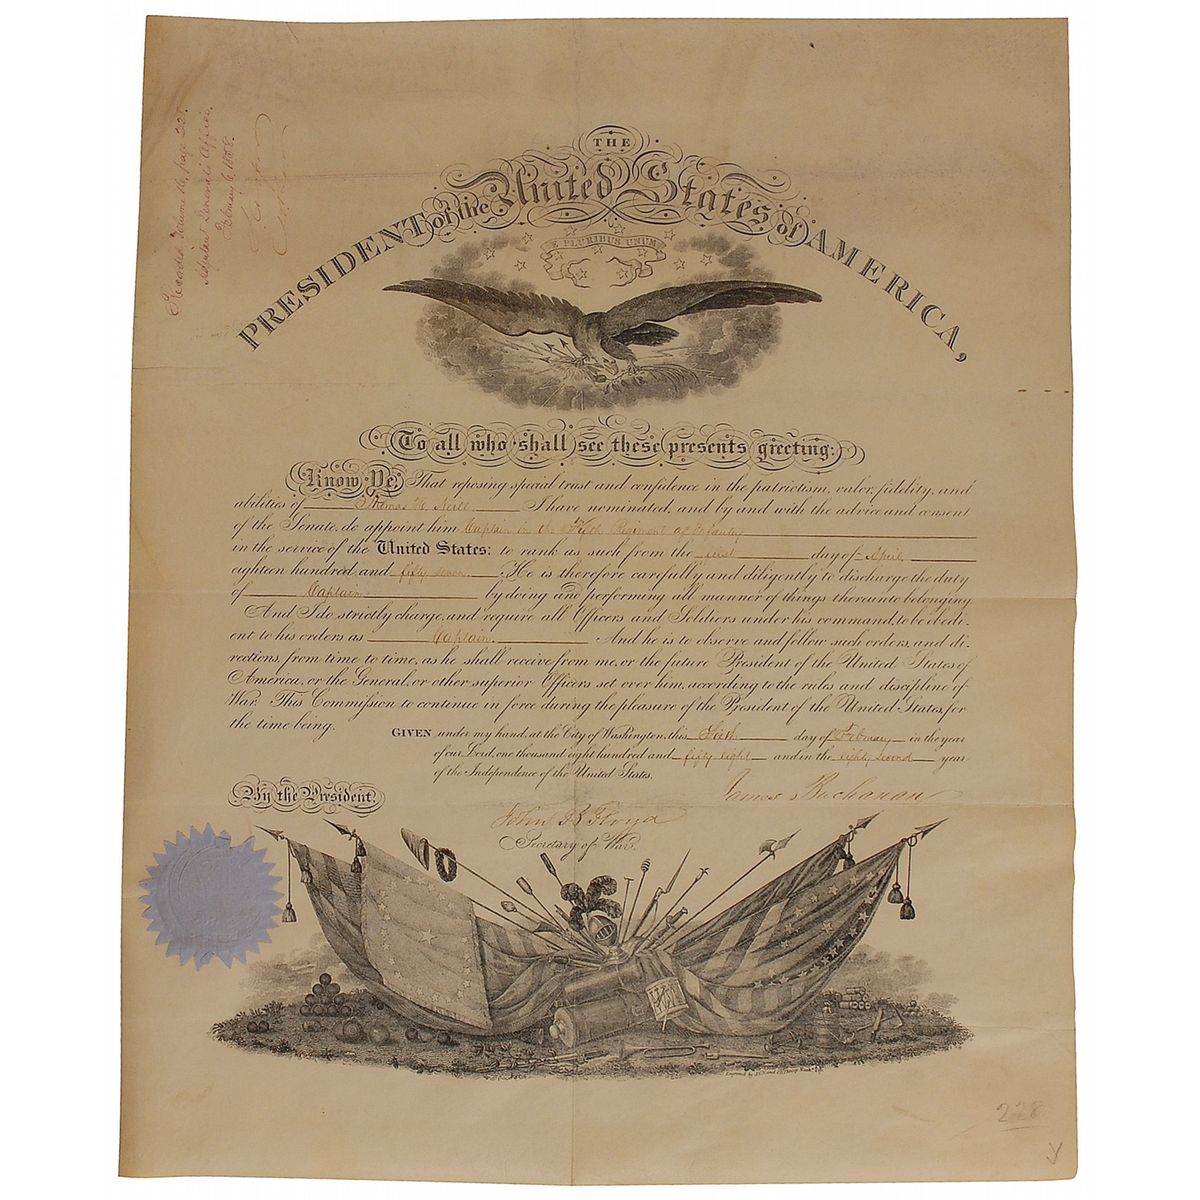 Recorded Volume 16, page 227.
Adjutant General's Office,
February 6, 1858.
THE
PRESIDENT of the United States of AMERICA,
E PLURIBUS UNUM
To all who shall see these presents greeting:
Know Ye, That reposing special trust and confidence in the patriotism, valor, fidelity, and
abilities of Thomas H. Neill, I have nominated, and by and with the advice and consent
of the Senate, do appoint him Captain in the Fifth Regiment of Infantry
in the service of the United States: to rank as such from the first day of April,
eighteen hundred and fifty seven. He is therefore carefully and diligently to discharge the duty
of Captain by doing and performing all manner of things thereunto belonging
And I do strictly charge, and require all Officers and Soldiers under his command, to be obedi-
ent to his orders as Captain. And he is to observe and follow such orders, and di-
rections, from time to time, as he shall receive from me, or the future President of the United States of
America, or the General, or other superior Officers set over him, according to the rules and discipline of
War. This Commission to continue in force during the pleasure of the President of the United States, for
the time being.
GIVEN under my hand, at the City of Washington, this Sixth day of February in the year
of our Lord, one thousand eight hundred and fifty eight and in the eighty second year
of the Independence of the United States.
James Buchanan
By the President,
John B Floyd
Secretary of War.
228